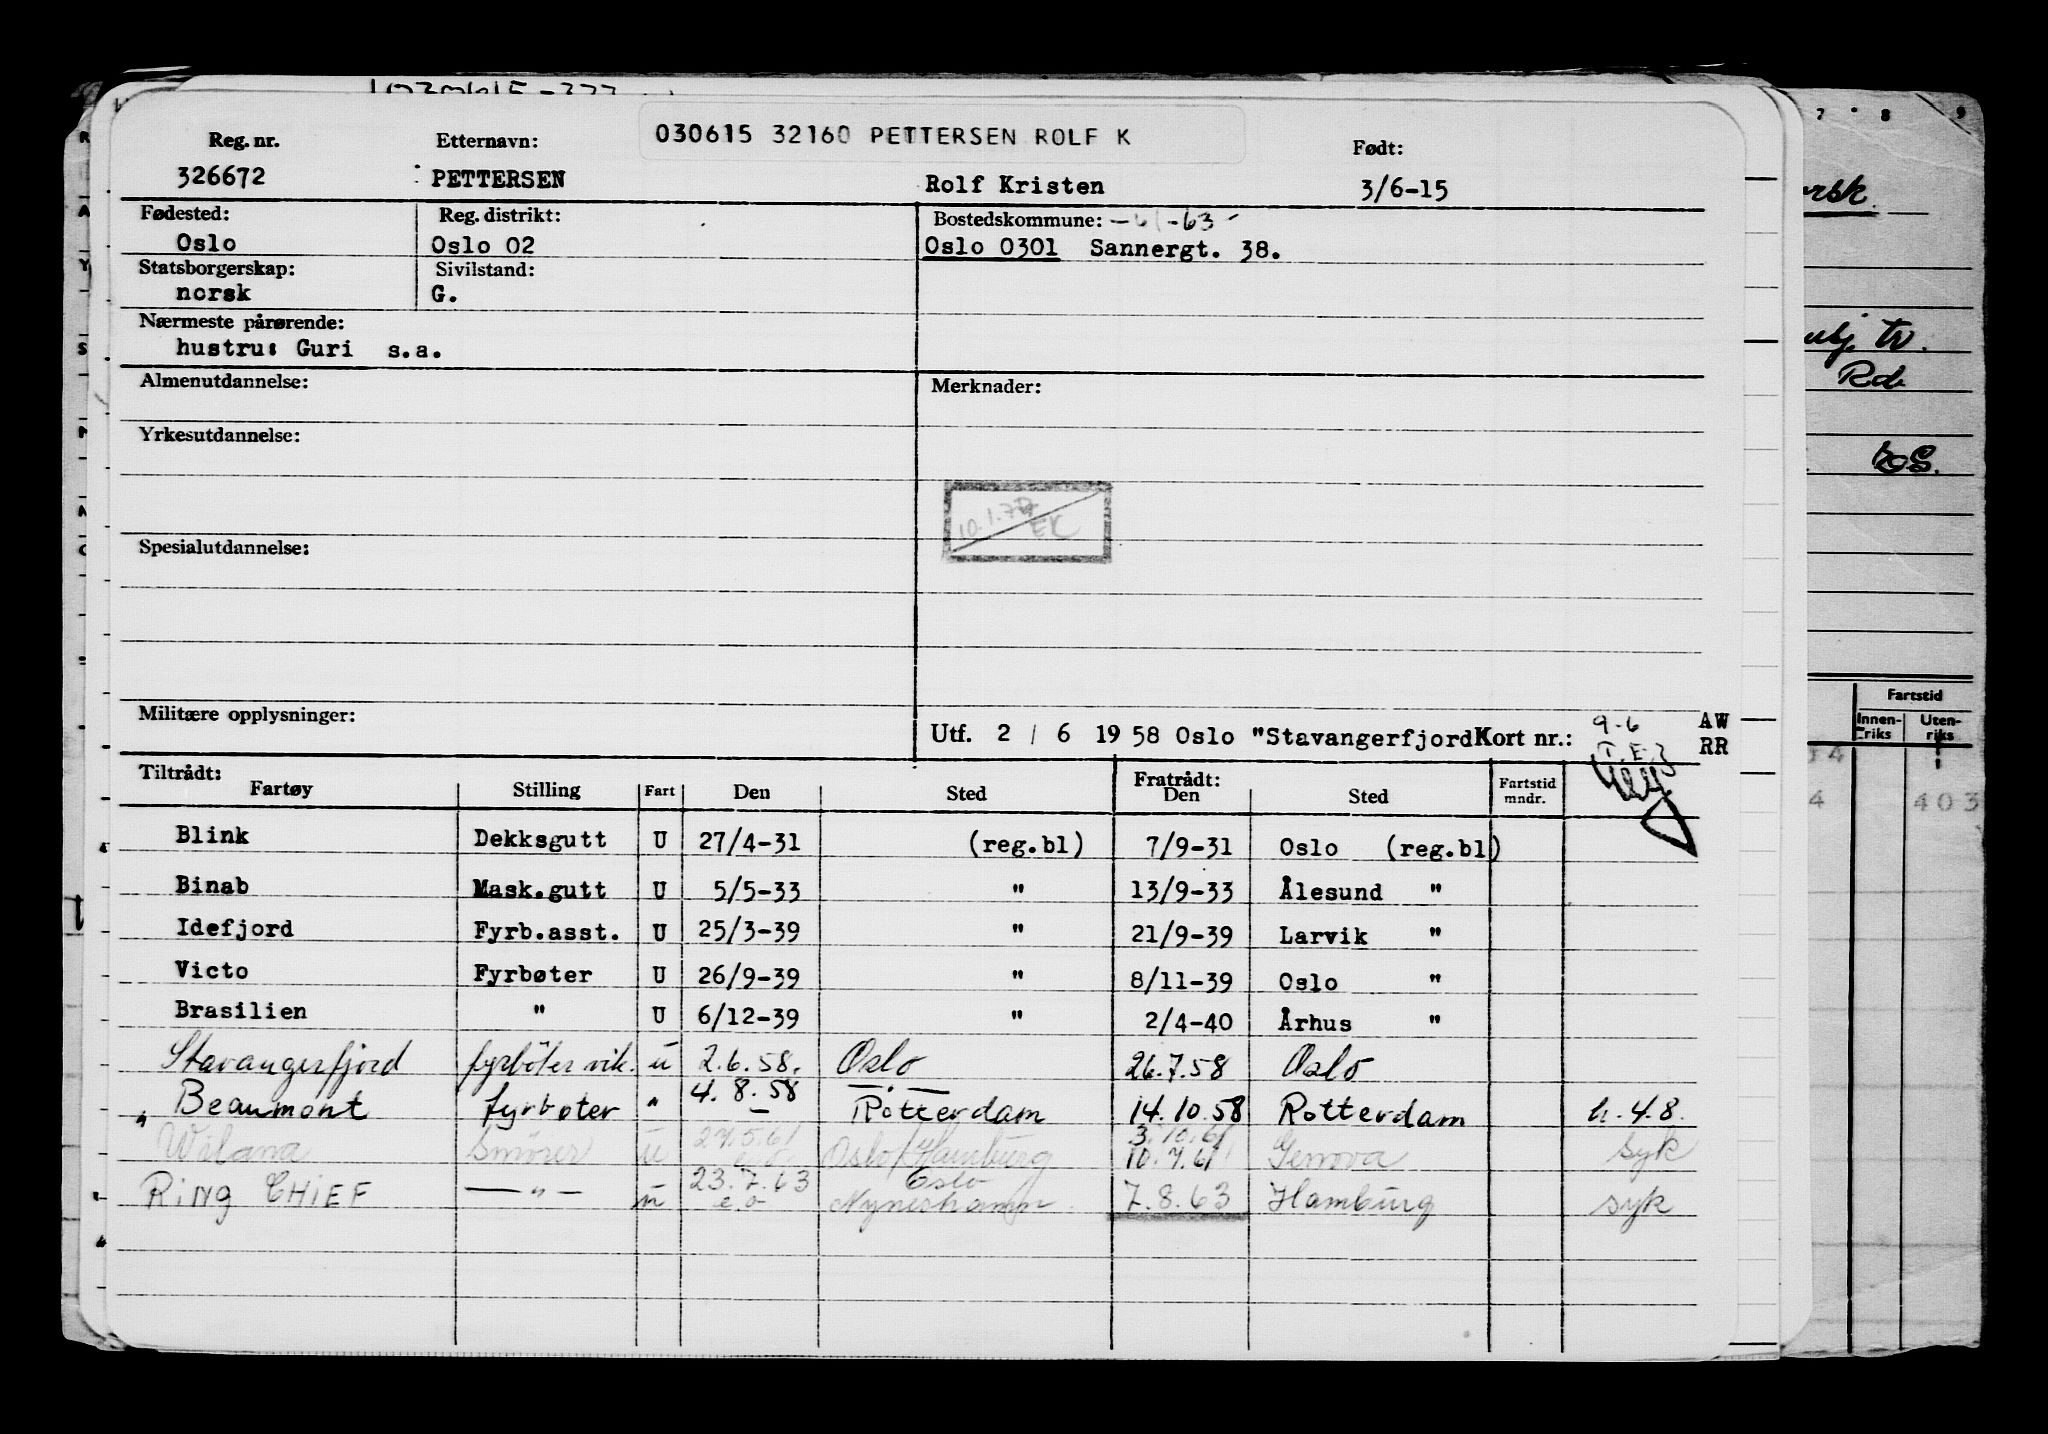 030615 32160 PETTERSEN ROLF K
Reg. nr. Etternavn: Født:
326672 PETTERSEN Rolf Kristen 3/6-15
Fødested: Reg. distrikt: Bostedskommune: -61-63-
Oslo Oslo 02 Oslo 0301 Sannergt. 38.
Statsborgerskap: Sivilstand:
norsk G.
Nærmeste pårørende:
hustru: Guri s.a.
Almenutdannelse: Merknader:
Yrkesutdannelse:
EK
Spesialutdannelse:
Militære opplysninger:
Utf. 2 / 6 1958 Oslo "Stavangerfjord Kort nr.: 9-6 AW
RR
Tiltrådt: Fratrådt:
Fartøy Stilling Fart Den Sted Den Sted Fartstid mndr.
Blink Dekksgutt U 27/4-31 (reg.bl) 7/9-31 Oslo (reg.bl)
Binab Mask.gutt U 5/5-33 " 13/9-33 Ålesund "
Idefjord Fyrb.asst. U 25/3-39 " 21/9-39 Larvik "
Victo Fyrbøter U 26/9-39 " 8/11-39 Oslo "
Brasilien " U 6/12-39 " 2/4-40 Århus "
Stavangerfjord fyrböter vik. u 2.6.58. Oslo 26.7.58 Oslo
" Beaumont fyrbøter " 4.8.58 — Rotterdam 14.10.58 Rotterdam h. 4.8.
Smörer u 27.5.61 Oslo/Hamburg 3.10.61 Genova syk
RiNG CHiEF — " — u 23.7.63 Oslo 7.8.63 Hamburg syk
7 8 9
Rd
Fartstid
Innenriks Utenriks
14
4 403